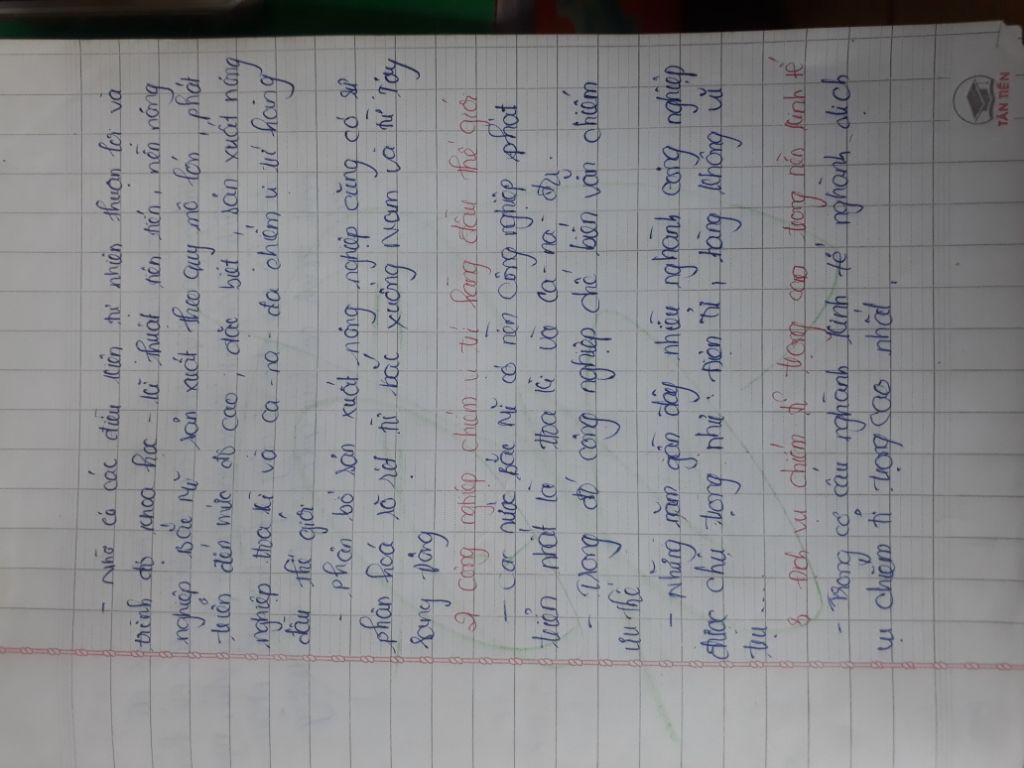 - Nhờ có các điều kiện tự nhiên thuận lợi và
trình độ khoa học - kĩ thuật tiên tiến, nền nông
nghiệp Bắc Mĩ sản xuất theo quy mô lớn, phát
triển đến mức độ cao, đặc biệt, sản xuất nông
nghiệp Hoa Kì và ca-na-đa chiếm vị trí hàng
đầu thế giới
- phân bố sản xuất nông nghiệp cũng có sự
phân hoá rõ rệt từ Bắc xuống Nam và từ Tây
sang Đông
2 công nghiệp chiếm vị trí hàng đầu thế giới
- các nước Bắc Mĩ có nền công nghiệp phát
triển nhất là Hoa Kì và ca-na-đa.
- Trong đó công nghiệp chế biến vẫn chiếm
ưu thế
- Những năm gần đây nhiều nghành công nghiệp
được chú trọng như: Điện tử, hàng không vũ
trụ.....
3 Dịch vụ chiếm tỉ trọng cao trong nền kinh tế
- Trong cơ cấu nghành kinh tế nghành dịch
vụ chiếm tỉ trọng cao nhất.
TÂN TIẾN